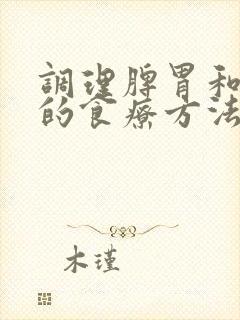 調理脾胃和
的食療方法
木瑾